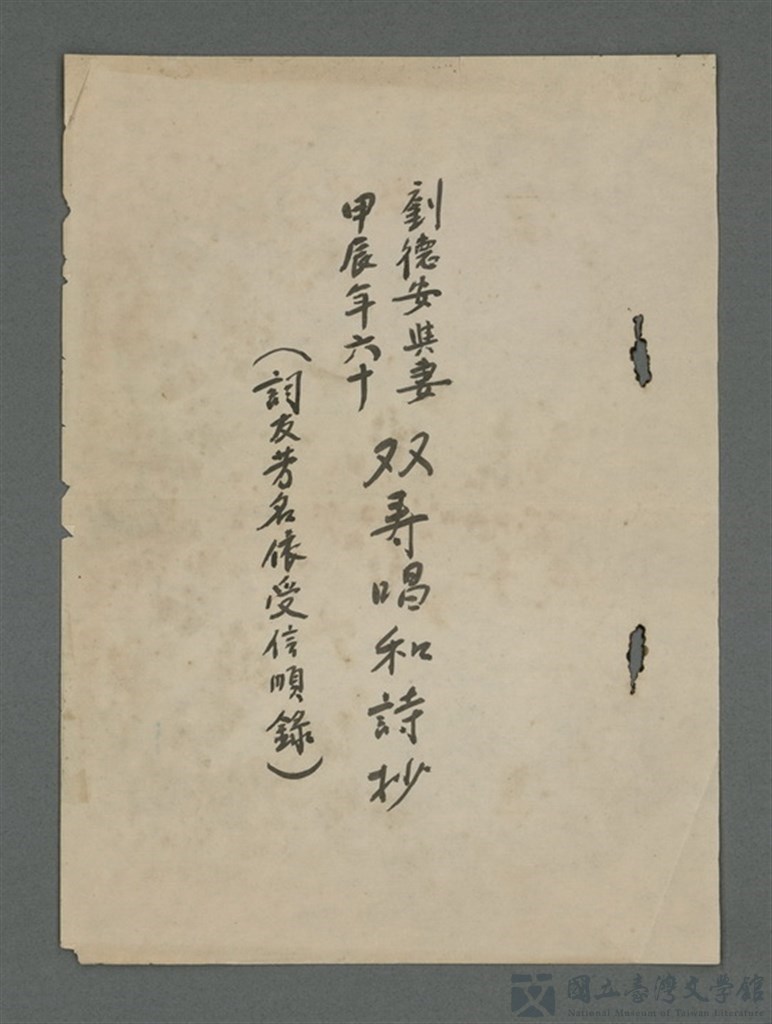 劉德安與妻
甲辰年六十
双寿唱和詩抄
（詞友芳名依受信順錄）
國立臺灣文學館
National Museum of Taiwan Literature